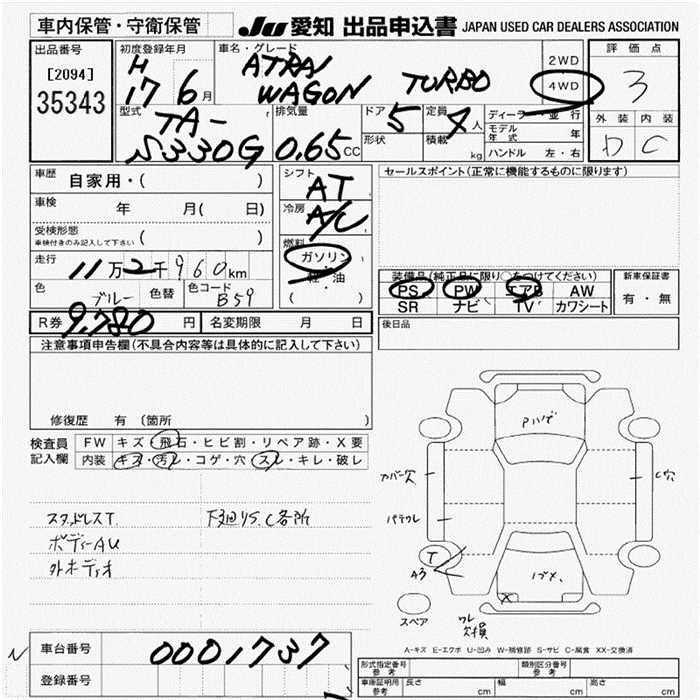 車内保管・守衛保管
JU 愛知 出品申込書 JAPAN USED CAR DEALERS ASSOCIATION
出品番号
[2094]
35343
初度登録年月
H
17 6 月
車名・グレード
ATRAI
WAGON TURBO
2WD
4WD
評価点
3
外装 内装
D C
型式
TA-
S330G
排気量
0.65 CC
ドア 5
形状
定員 4 人
積載 kg
ディーラー・並行
モデル年式 年
ハンドル 左・右
車歴 自家用・( )
車検 年 月( 日)
受検形態
車検付きのみ記入して下さい ( )
走行 11万2千960km
色 ブルー 色替 色コード B59
シフト AT
冷房 A/C
燃料
ガソリン
軽・油
( )
セールスポイント(正常に機能するものに限ります)
装備品(純正品に限り○をつけてください)
PS PW エアB AW
SR ナビ TV カワシート
新車保証書
有・無
R券 9,780 円 名変期限 月 日
後日品
注意事項申告欄(不具合内容等は具体的に記入して下さい)
修復歴 有 (箇所 )
検査員記入欄
FW キズ・飛石・ヒビ割・リペア跡・X要
内装 キズ・汚レ・コゲ・穴・スレ・キレ・破レ
スタッドレスT.
ボディーAU
外オーディオ
下廻りS.C各所
Pハゲ
カバー欠
C穴
パテワレ
T
A3
X
スペア
ワレ
欠損
A-キズ E-エクボ U-凹み W-補修跡 S-サビ C-腐食 XX-交換済
車台番号 0001737
登録番号
形式指定番号
参考
類別区分番号
参考
車庫証明用
参考
長さ cm 幅 cm 高さ cm